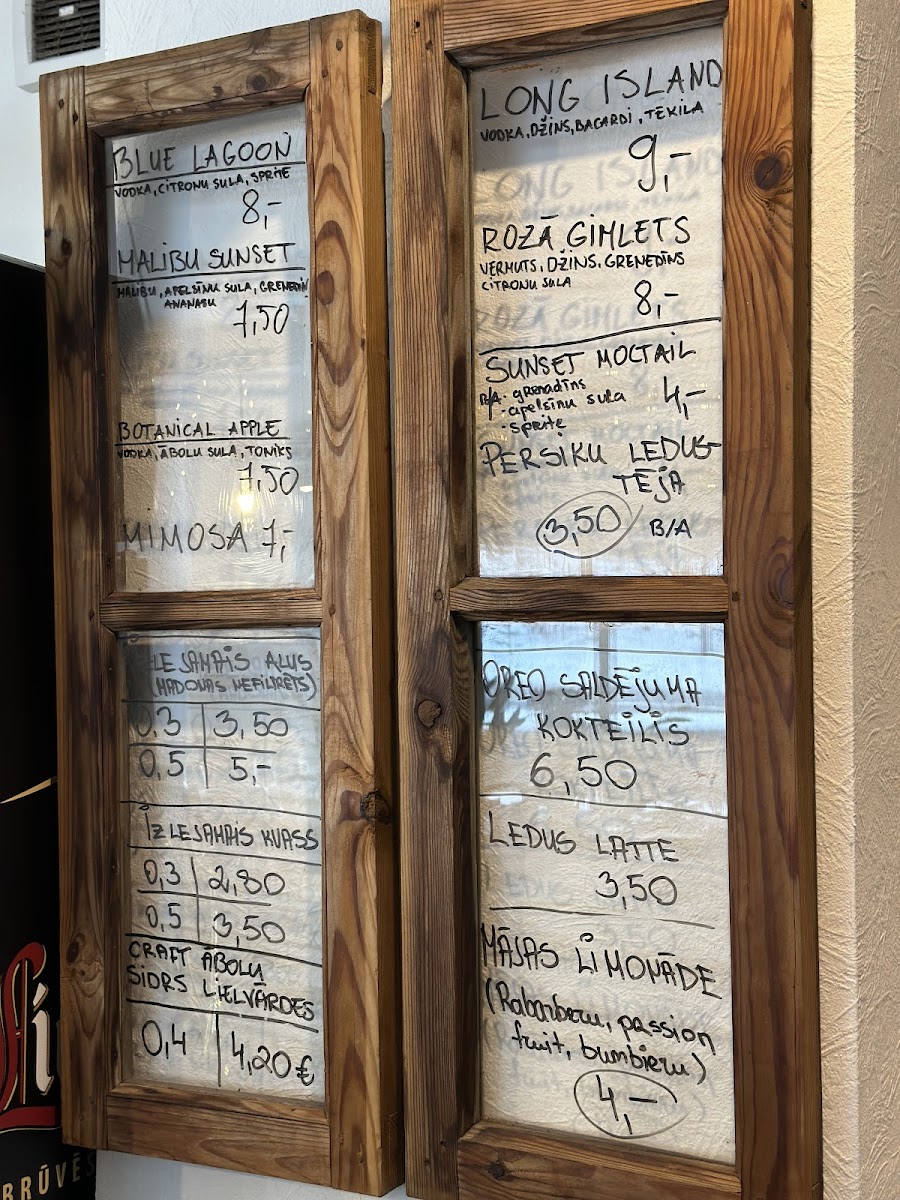 BLUE LAGOON
VODKA, CITRONU SULA, SPRITE
8,-
MALIBU SUNSET
MALIBU, APELSĪNU SULA, GRENEDĪN
ANANASU
7,50
BOTANICAL APPLE
VODKA, ĀBOLU SULA, TONIKS
7,50
MIMOSA 7,-
IZLEJAMAIS ALUS
(MADONAS NEFILTRĒTS)
0,3 3,50
0,5 5,-
IZLEJAMAIS KVASS
0,3 2,80
0,5 3,50
CRAFT ĀBOLU
SIDRS LIELVĀRDES
0,4 4,20€
LONG ISLAND
VODKA, DŽINS, BACARDI, TEKILA
9,-
ROZĀ GIMLETS
VERMUTS, DŽINS, GRENEDĪNS
CITRONU SULA
8,-
SUNSET MOCTAIL
B/A · grenadīns
· apelsīnu sula 4,-
· sprite
PERSIKU LEDUS-
TĒJA
3,50 B/A
OREO SALDĒJUMA
KOKTEILIS
6,50
LEDUS LATTE
3,50
MĀJAS LIMONĀDE
(Rabarberu, passion
fruit, bumbieru)
4,-
BRŪVĒS